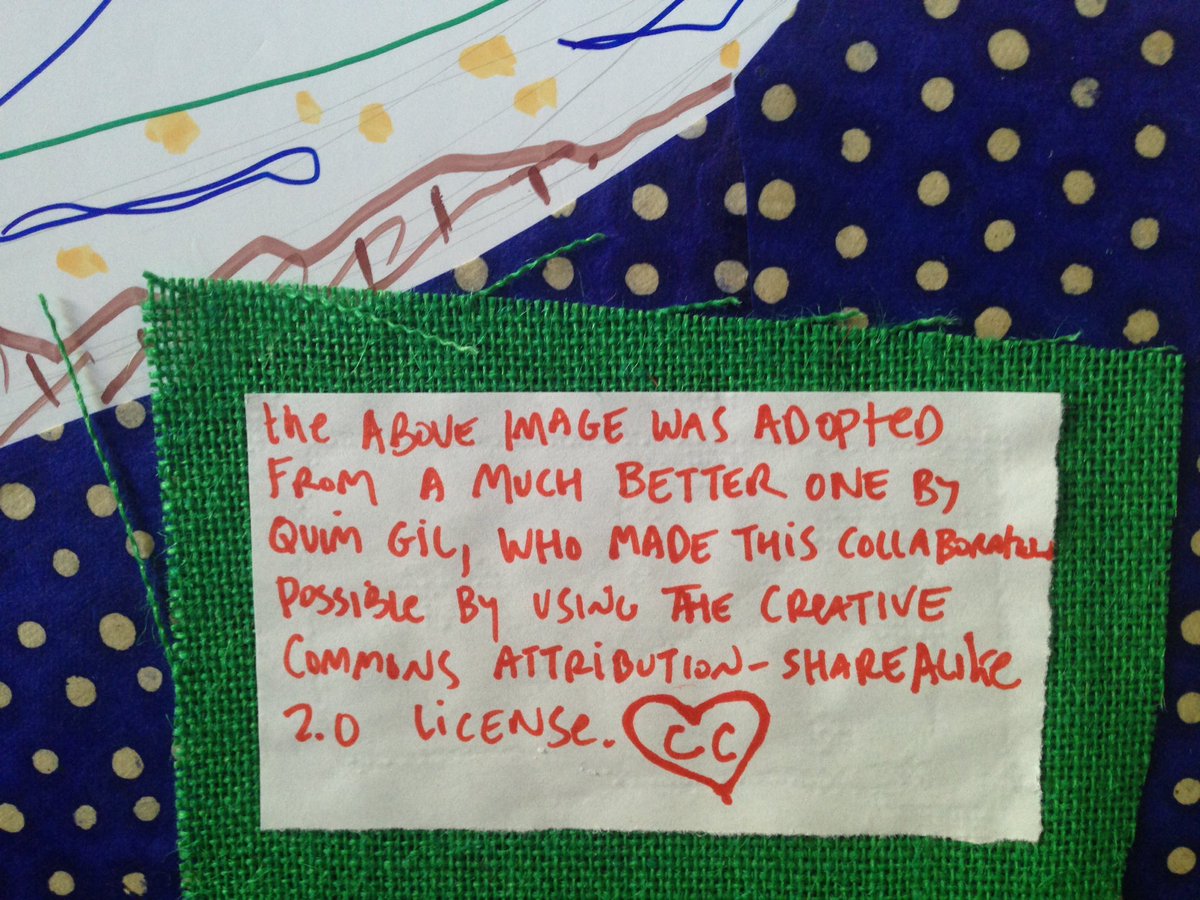 the ABOVE IMAGE WAS ADOPTED
FROM A MUCH BETTER ONE BY
QUIM GIL, WHO MADE THIS COLLABORATION
POSSIBLE BY USING THE CREATIVE
COMMONS ATTRIBUTION-SHAREALIKE
2.0 LICENSE. CC